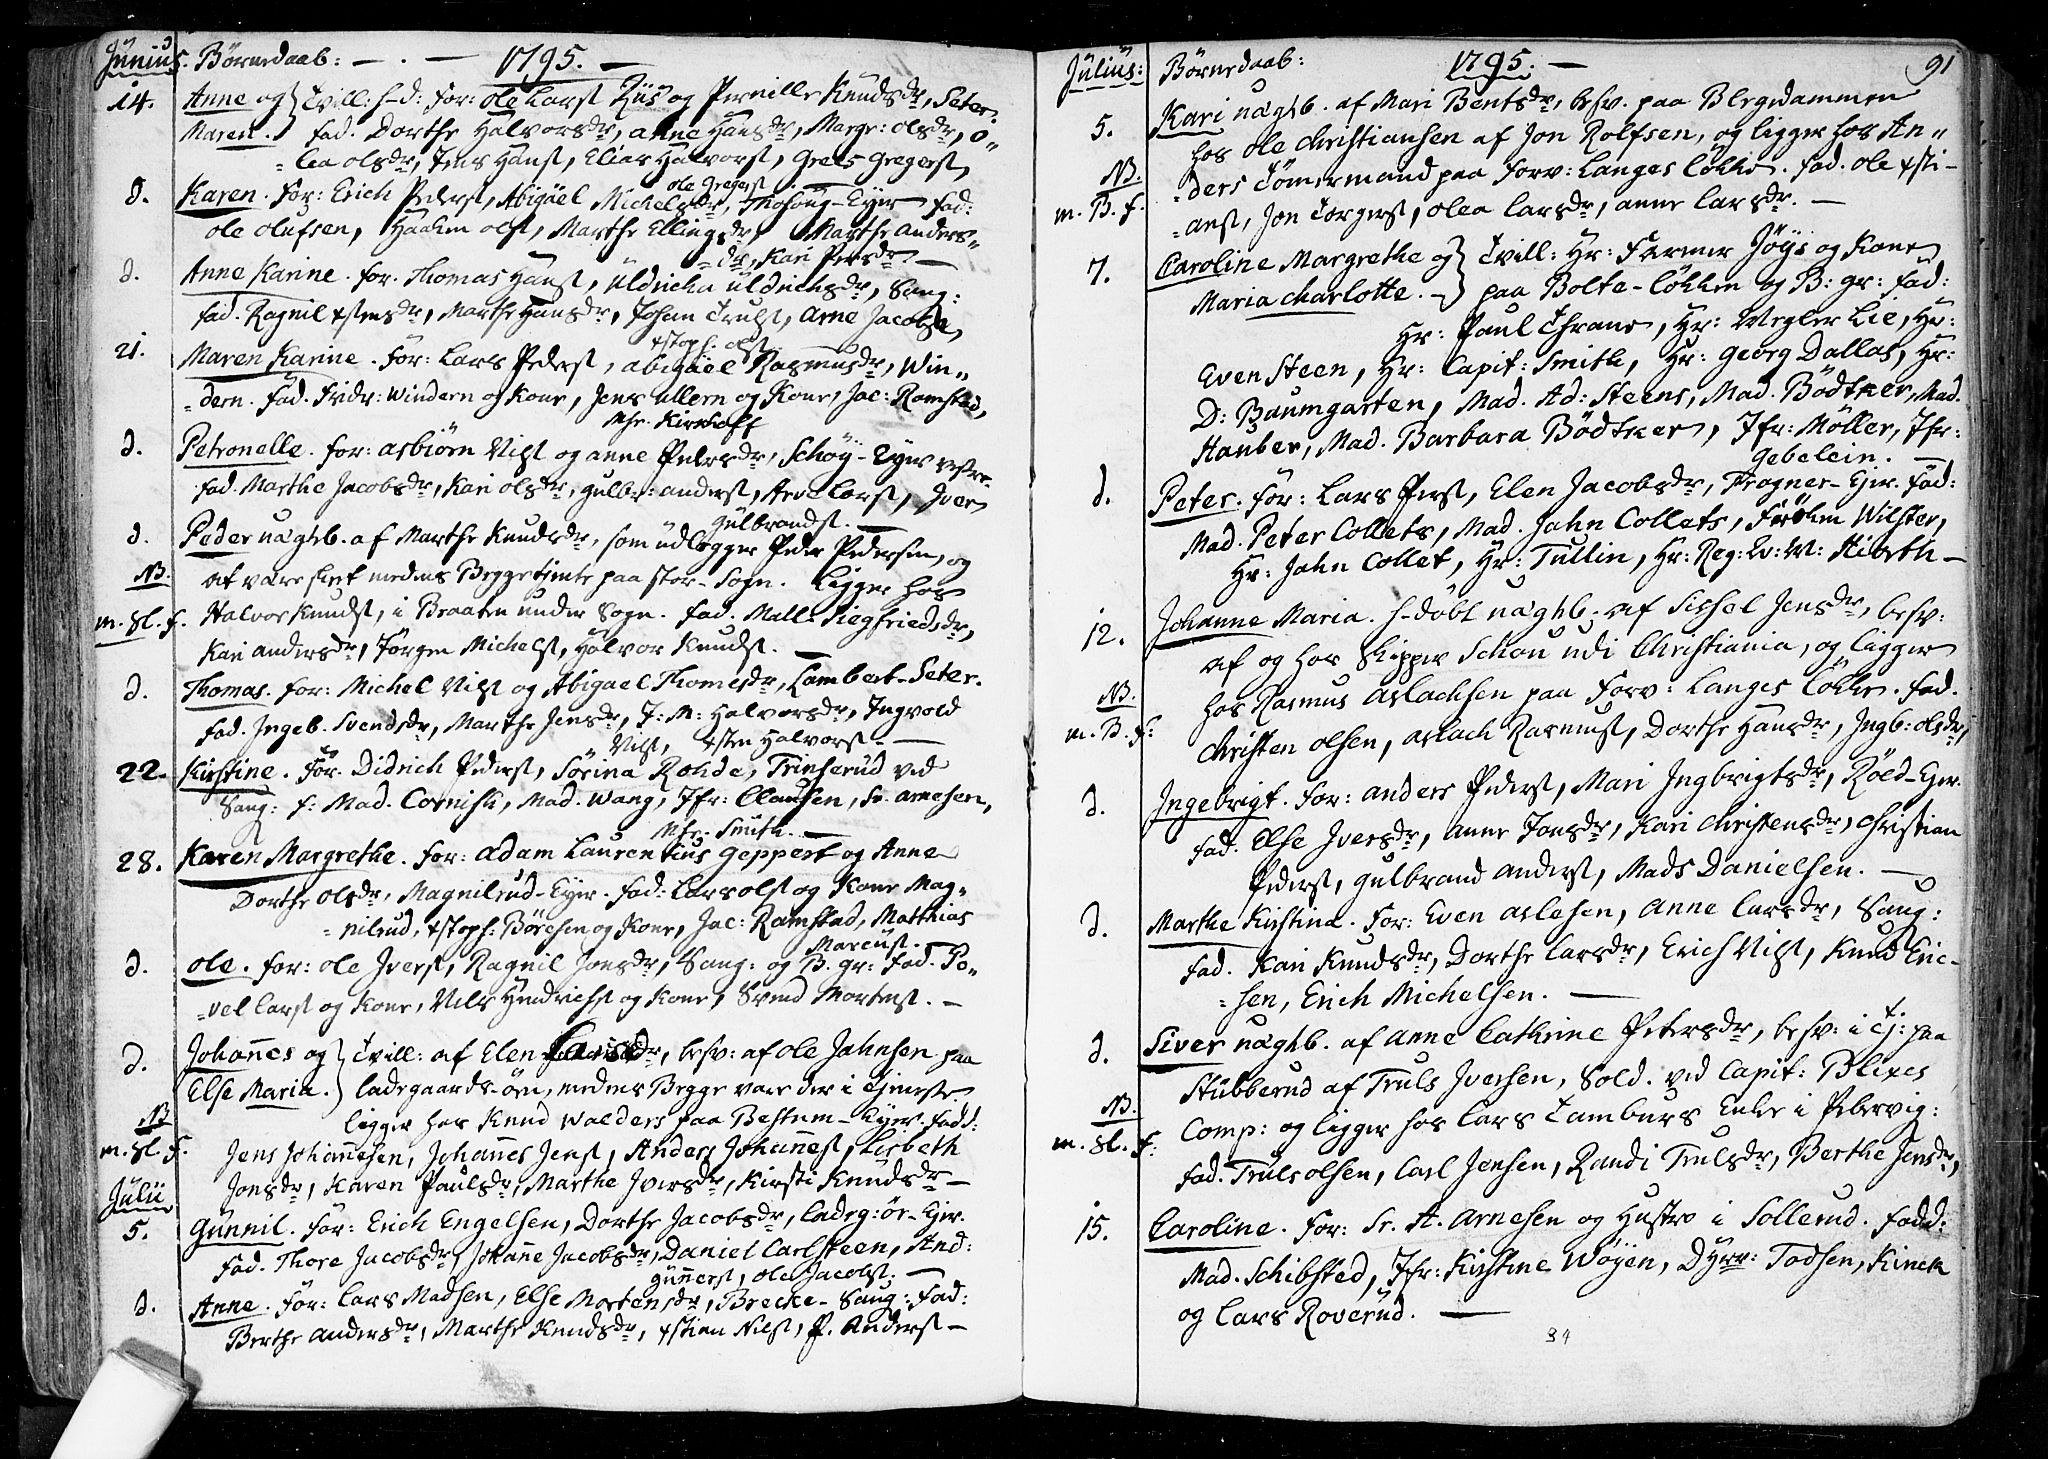 Junius. Børnedaab: — . — 1795. —
14. Anne og } Tvill: h-d: For: ole Larsr Ziis og Pernille Knudsdr, Seter.
Maren. } fad. Dorthe Halvorsdr, anne Hansdr, Margr: olsdr, O„
„lea olsdr, Jens Hansr, Elias Halvorsr, Grels Gregersr,
ole Gregersr
d. Karen. For: Erich Pedersr, Abigäel Michelsdr, Thosöug-Eyer fad:
ole olufsen, Haaken olsr, Marthe Ellingsdr, Marthe Anders„
„dr, Kari Persdr —
d. Anne Karine. for. Thomas Hansr, Üldricha üldrichsdr, Sang:
fad. Ragnil xstensdr, Marthe Hansdr, Johan Trulsr, Arne Jacobsr,
xstoph. olsr
21. Maren Karine. For: Lars Pedersr, abigäel Rasmusdr, Win„
„dern. fad. Fridr: Windern og Kone, Jens Ullern og Kone, Jac: Ramstad,
Mhr. Kirkhoff
d. Petronelle. for: asbiørn Nilsr og anne Pedersdr, Schøy-Eyer vestre.
fad. Marthe Jacobsdr, Kari olsdr, gulbr: andersr, Arve Larsr, Iver
Gülbrandsr. —
d. Peder uægtb. af Marthe Knudsdr, som udlegger Peder Pedersen, og
NB. at være skeet medens Begge tjente paa stor-Sogn. Ligger hos
m. Sl. f. Halvor Knudsr, i Braaten under Sogn. fad. Mall: Siegfriedsdr,
Kari andersdr, Jørgen Michelsr, Halvor Knudsr. —
d. Thomas. for: Michel Nilsr og Abigael Thomesdr, Lambert-Seter.
fad. Ingeb. Svendsdr, Marthe Jensdr, J: M: Halvorsdr, Ingvold
Nilsr, xsten Halvorsr. —
22. Kirstine. För. Didrich Pedersr, Sörina Rohde, Trinserud ved
Sang: f: Mad. Cornish, Mad. Wang, Jfr: Clausen, Sr. Arnesen,
Mhr. Smith. —
28. Karen Margrethe. For: Adam Laurentius Geppert og Anne
Dorthe olsdr, Magnilrud-Eyer. fad: Lars olsr og Kone Mag„
„nilrud, xstoph: Börchsen og Kone, Jac: Ramstad, Matthias
Marcusr. —
d. ole. for: ole Iversr, Ragnil Jonsdr, Sang: og B. gr: fad. Po„
„vel Larsr og Kone, Nils Hendrichsr og Kone, Svend Mortensr. —
d. Johannes og } Tvill: af Elen Larsdr, besv: af ole Jahnsen paa
Else Maria. } ladegaards-øen, medens Begge vare der i Tjeneste.
NB ligger hos Knud Walders paa Bestum-Eyer. fadd:
m. Sl. f. Jens Johannesen, Johannes Jensr, Anders Johannesr, Lisbeth
Jonsdr, Karen Paulsdr, Marthe Iversdr, Kirsti Knudsdr —
Julii
5. Gunnil. För: Erich Engelsen, Dorthe Jacobsdr, Ladeg: ör-Ejer.
fad. Thore Jacobsdr, Johanne Jacobsdr, Daniel Carlsteen, And:
Gunnersr, ole Jacobsr. —
d. Anne. För: Lars Madsen, Else Mortensdr, Brecke-Sang: fad:
Berthe andersdr, Marthe Knudsdr, xstian Nilsr, P. Andersr —
Julius: Børnedaab: 1795. — 91
5. Kari uægtb. af Mari Bentsdr, besv. paa Blegdammen
hos ole Christiansen af Jon Rolfsen, og ligger hos An„
NB. „ders Tömermand paa Forv: Langes Lökke. fad. ole xsti-
m. B. f. „ansr, Jon Torgersr, olea Larsdr, anne Larsdr. —
7. Caroline Margrethe og } Tvill: Hr: Farmer Jöys og Kone
Maria Charlotte. — } paa Bolte-Lökken og B: gr: fad:
Hr: Paul Thrane, Hr: Wegler Lie, Hr:
Even Steen, Hr: Capit: Smith, Hr: Georg Dallas, Hr:
D: Baumgarten, Mad. Ad: Steens, Mad. Bödtker, Mad.
Hauber, Mad. Barbara Bödtker, Jfr: Möller, Jfr:
Gebelein. —
d. Peter. För: Lars Persr, Elen Jacobsdr, Frogner-Ejer. fad:
Mad. Peter Collets, Mad. Jahn Collets, Frökn Wilster,
Hr: Jahn Collet, Hr: Tullin, Hr: Reg: Qv: M: Hiorth —
12. Johanne Maria. h-döbt uægtb. af Sissel Jensdr, besv:
af og hos Skipper Schou udi Christiania, og ligger
NB. hos Rasmus Aslachsen paa Forv: Langes Lökke. fad.
m. B. f: Christen olsen, aslach Rasmusr, Dorthe Hansdr, Ingb: olsdr,
d. Ingebrigt. For: anders Pedersr, Mari Ingbrigtsdr, Röed-Eyer.
fad. Else Iversdr, Anne Jonsdr, Kari Christensdr, Christian
Pedersr, Gulbrand Andersr, Mads Danielsen. —
d. Marthe Kirstina. For: Even Aslesen, Anne Larsdr, Sang:
fad. Kari Knudsdr, Dorthe Larsdr, Erich Nilsr, Knud Eric-
„sen, Erich Michelsen. —
d. Siver uægtb. af Anne Cathrine Petersdr, besv: i Tj: paa
Stubberud af Truls Iversen, Sold. ved Capit: Blixes
NB. Comp: og ligger hos Lars Tamburs Enke i Pebervig:
m. Sl. f: fad. Truls olsen, Carl Jensen, Randi Trulsdr, Berthe Jensdr,
15. Caroline. For: Sr. A. Arnesen og Hustro i Sollerud. fadd:
Mad. Schibsted, Jfr: Kirstine Wøyen, Dyrr: Todsen, Kinck
og Lars Roverud. —
84